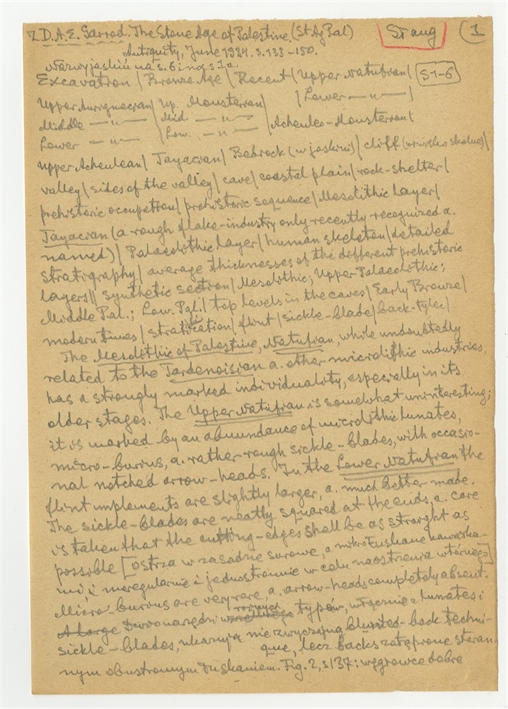 Z D.A.E. Garrod. The Stone Age of Palestine. (St Ag Pal) St ang 1
Antiquity, June 1934. s. 133-150.
Excavation / Bronze Age / Recent / Upper Natufian / S1-6
Upper Aurignacian / Up. Mousterian / Lower —"— /
Middle —"— / Mid —"— /
Lower —"— / Low. —"— / Acheuleo-Mousterian /
Upper Acheulean / Tayacian / Bedrock (w jaskini) / cliff /
valley / sides of the valley / cave / coastal plain / rock-shelter /
prehistoric occupation / prehistoric sequence / Mesolithic Layer /
Tayacian (a rough flake-industry only recently recognized a.
named) / Palaeolithic Layer / human skeleton / detailed
stratigraphy / average thicknesses of the different prehistoric
layers // synthetic section / Mesolithic; Upper-Palaeolithic;
Middle Pal.; Low. Pal. / top levels in the caves / Early Bronze /
modern times / stratification / flint / sickle-blade / back-
The Mesolithic of Palestine, Natufian, while undoubtedly
related to the Tardenoisian a. other microlithic industries,
has a strongly marked individuality, especially in its
older stages. The Upper Natufian is somewhat uninteresting;
it is marked by an abundance of microlithic lunates,
micro-burins, a. rather rough sickle-blades, with occasio-
nal notched arrow-heads. In the Lower Natufian the
flint implements are slightly larger, a. much better made.
The sickle-blades are neatly squared at the ends, a. care
is taken that the cutting-edges shall be as straight as
possible [ostrza w zasadzie surowe, a mikrołuskane
i nieregularnie i jednostronnie w celu naostrzenia
Micro burins are very rare a. arrow-heads completely absent.
typów, włącznie z lunates i
sickle-blades, ukazują nie zwyczajną blunted-back techni-
que, lecz backs zatępione staran-
nym obustronnym łuskaniem. Fig. 2, s. 137: węgłowce dobre